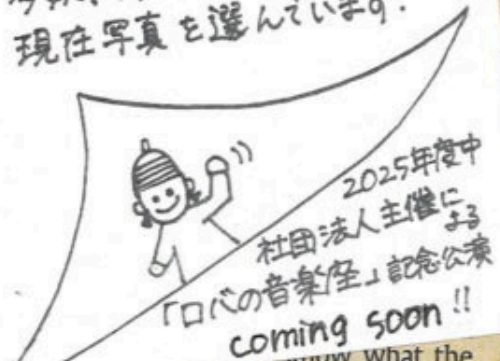 現在写真を選んでいます.
2025年度中
社団法人主催に
よる
「ロバの音楽座」記念公演
coming soon!!
what the